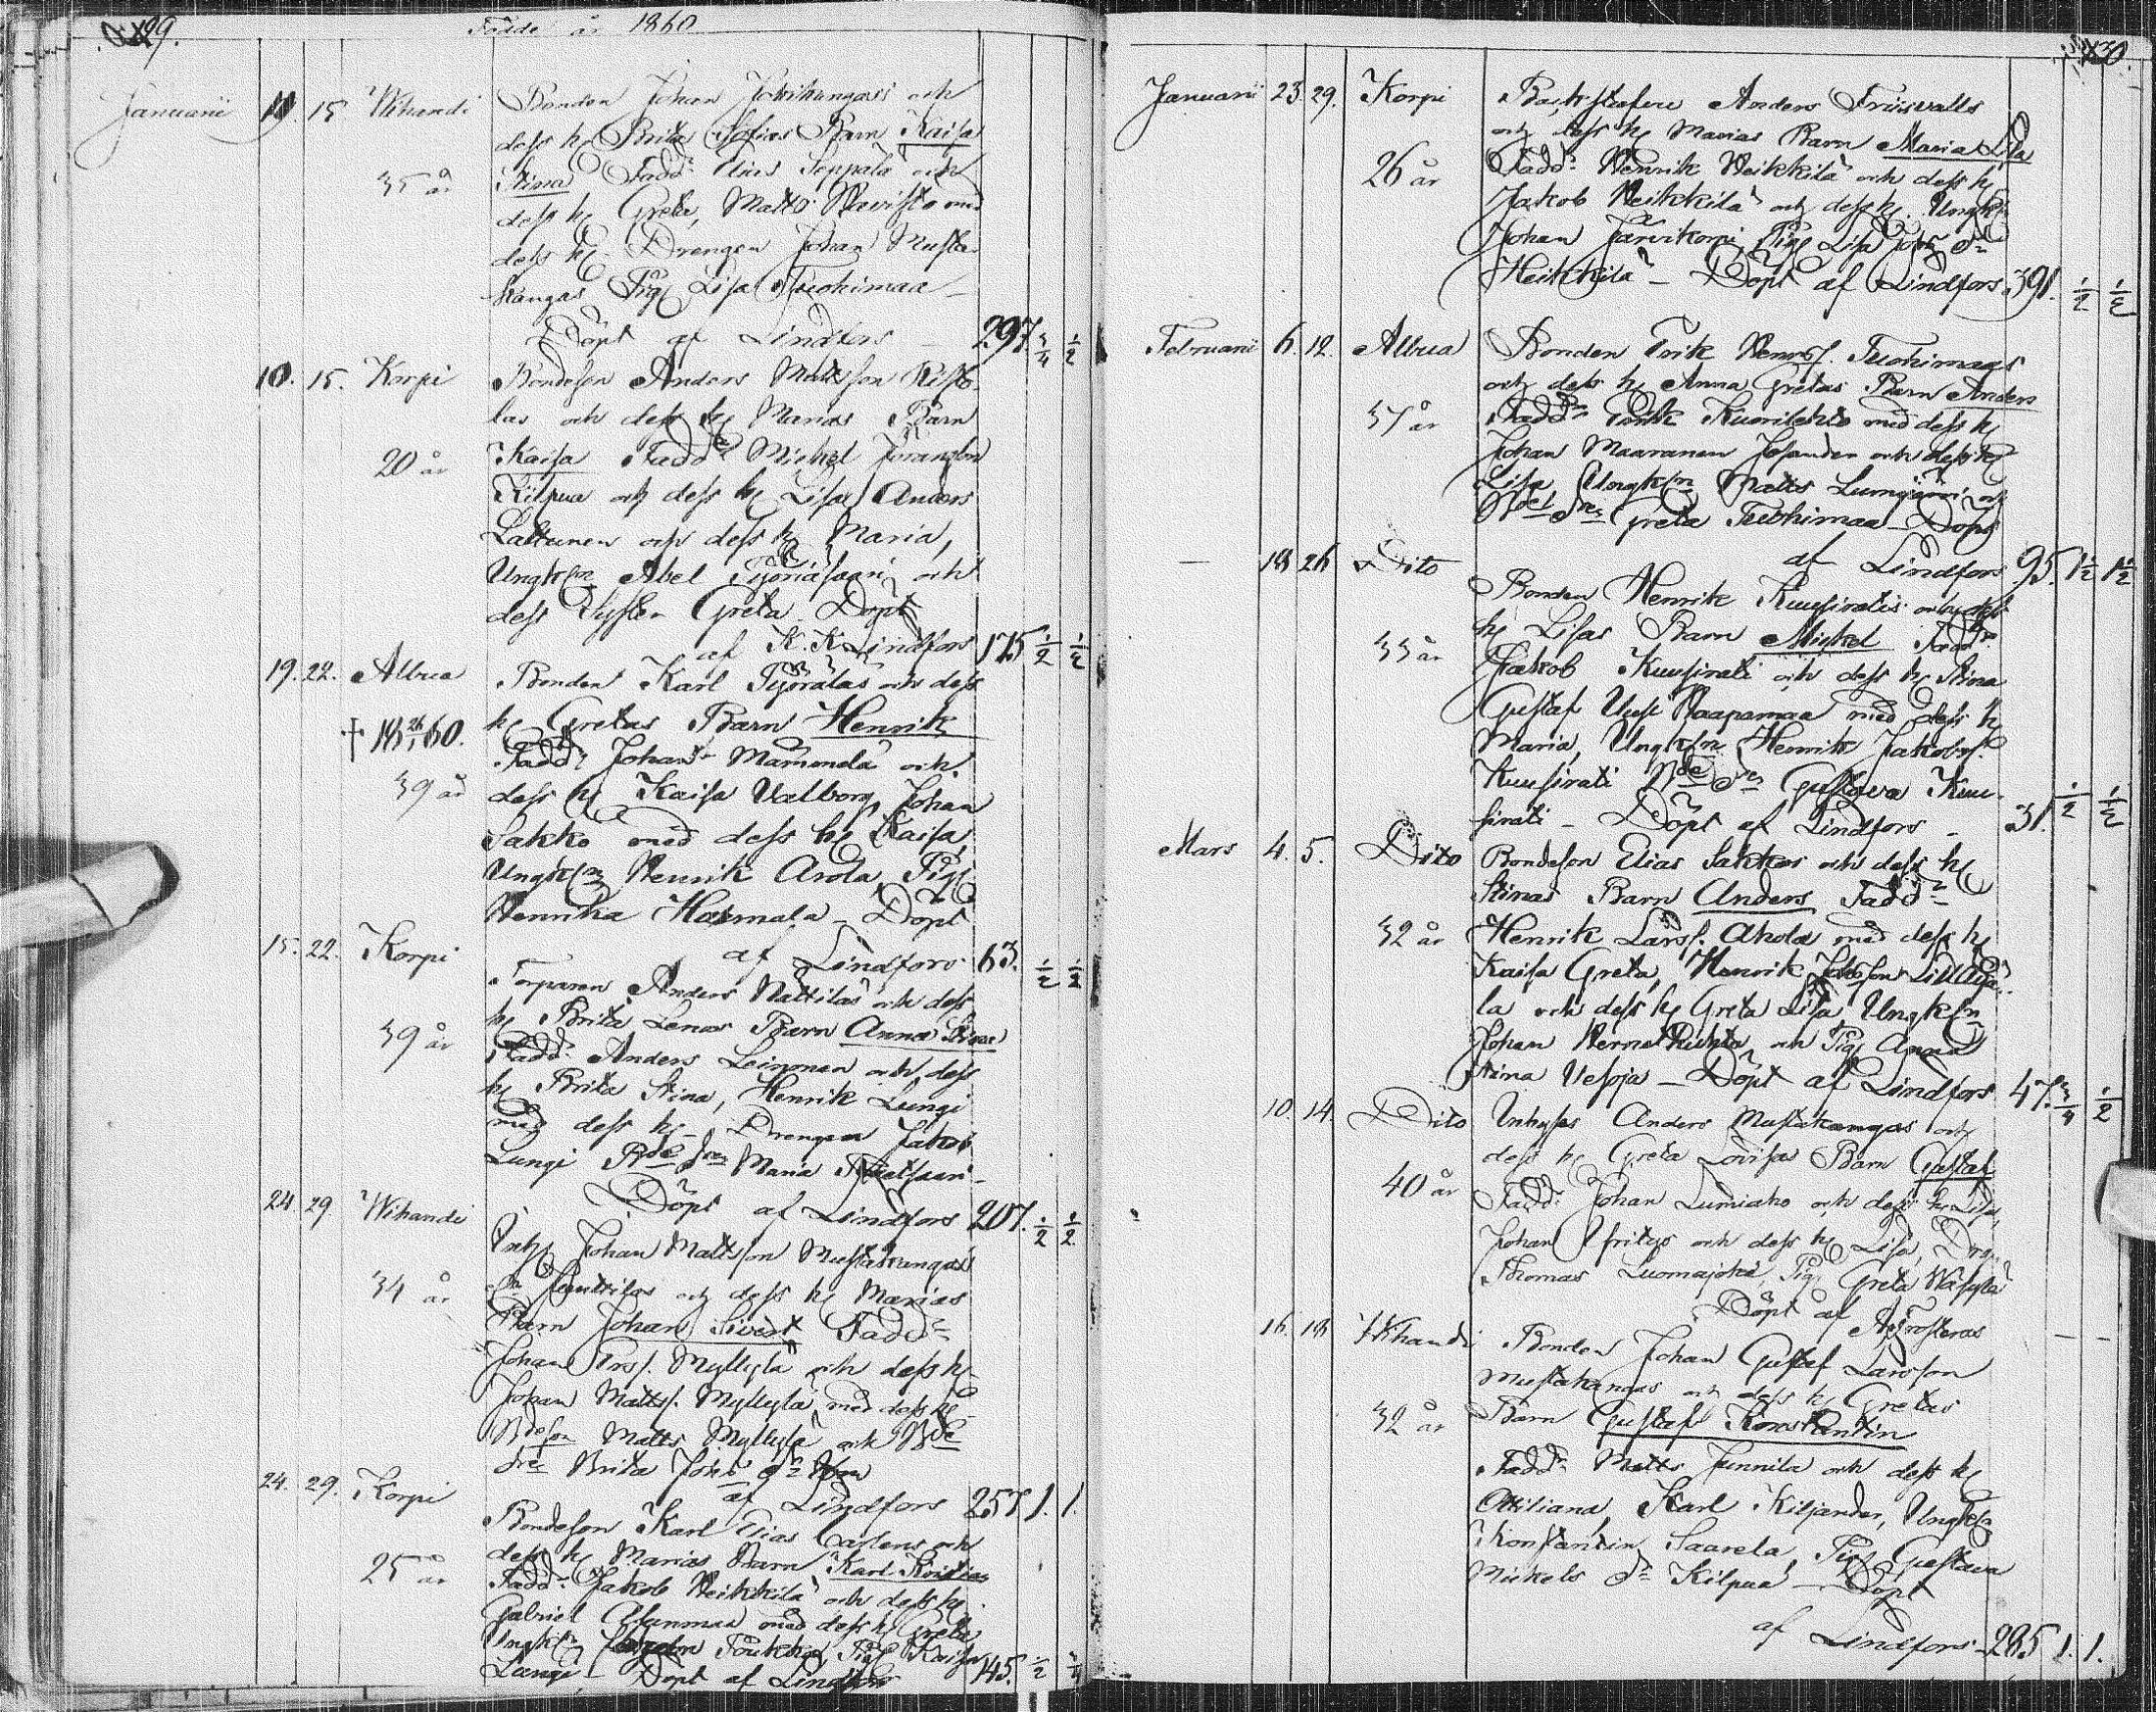 29.
Födde år 1860
Januarii 10. 15 Wihandi Bonden Johan och
dess h. Brita Sofias Barn Kaisa
35 år Stina Fadd: Elias Seppälä och
dess h. Greta, Matts Ravisto med
dess h. Drengen Johan Musta-
kangas Pig. Lisa Tuohimaa
Döpt af Lindfors 297 3/4 1/2
10. 15. Korpi Bondeson Anders Mattsson Risto-
las och dess h. Marias Barn
20 år Kaisa Fadd: Mickel Göransson
Kilpua och dess h. Lisa, Anders
Lattunen och dess h. Maria,
Ungk:n Abel och
dess Syster Greta Döpt
af K. K. Lindfors 175 1/2 1/2
19. 22. Albua Bonden Karl Pyöräläs och dess
h. Gretas Barn Henrik
† 18 26/1 60. Fadd: Johan Mämmelä och
39 år dess h. Kaisa Valborg, Johan
Sakko med dess h. Kaisa,
Ungk:n Henrik Arola, Pig.
Henrika Härmälä Döpt
af Lindfors 63. 1/2 1/2
15. 22. Korpi Torparen Anders Mattilas och dess
h. Brita Lenas Barn Anna Stina
39 år Fadd: Anders Leinonen och dess
h. Brita Stina, Henrik Lungi
med dess h. Drengen Jakob
Lungi Bde Maria
Döpt af Lindfors 207. 1/2 1/2
24. 29 Wihandi Inh. Johan Mattsson Mustakangas
och dess h. Marias
34 år Barn Johan Sivert Fadd:
Johan Myllylä och dess h.
Johan Matts. Myllylä med dess h.
Bdeson Matts Myllylä och Bde
Brita
af Lindfors 257 1. 1.
24. 29. Korpi Bondeson Karl Elias och
dess h. Marias Barn Karl Kristian
25 år Fadd: Jakob Heikkilä och dess h.
Gabriel Alanmaa med dess h. Greta
Ungk:n Toukka, Pig. Kaisa
Lungi Döpt af Lindfors 145. 1/2
30.
Januarii 23. 29. Korpi Anders Friisvalls
och dess h. Marias Barn Maria Lisa
26 år Fadd: Henrik Heikkilä och dess h.
Jakob Heikkilä och dess h. Ungk:n
Johan Järvikorpi, Pig. Lisa
Heikkilä – Döpt af Lindfors. 391. 1/2 1/2
Februarii 6. 12. Albua Bonden Erik Henr:s. Tuohimaas
och dess h. Anna Gretas Barn Anders
37 år Fadd: Erik Kuorilehto med dess h.
Johan Maaranen Josander och dess h.
Lisa, Ungk:n Matts Lumijärvi och
Greta Tuohimaa – Döpt
af Lindfors 95. 1 1/2 1 1/2
— 18 26 Dito Bonden Henrik Kuusiratis och dess
h. Lisas Barn Mickel Fadd:
33 år Jakob Kuusirati och dess h. Stina
Gustaf Uusi Haapamaa med dess h.
Maria, Ungk:n Henrik Jakobs:
Kuusirati Gustava Kuu-
sirati – Döpt af Lindfors – 31. 1/2 1/2
Mars 4. 5. Dito Bondeson Elias Sakkos och dess h.
Stinas Barn Anders Fadd:
32 år Henrik Lars:s. Ahola med dess h.
Kaisa Greta, Henrik
la och dess h. Greta Lisa Ungk:n
Johan och Pig. Anna
Stina Vesoja – Döpt af Lindfors 47. 3/4 1/2
10. 14. Dito Inhyses Anders Mustakangas och
dess h. Greta Lovisas Barn Gustaf
40 år Fadd: Johan Lumiaho och dess h. Lisa,
Johan och dess h. Lisa, Dren.
Thomas Luomajoki, Pig. Greta
Döpt af — —
16. 18 Wihandi Bonden Johan Gustaf Larsson
Mustakangas och dess h. Gretas
32 år Barn Gustaf Konstantin
Fadd: Matts Junnila och dess h.
Ottiliana, Karl Kiljander, Ungk:n
Konstantin Saarela, Pig. Gustava
Mickels d:r Kilpua – Döpt
af Lindfors – 285 1. 1.